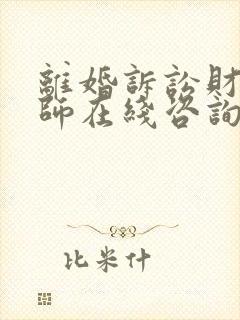 離婚訴訟財
師在綫咨詢
比米什